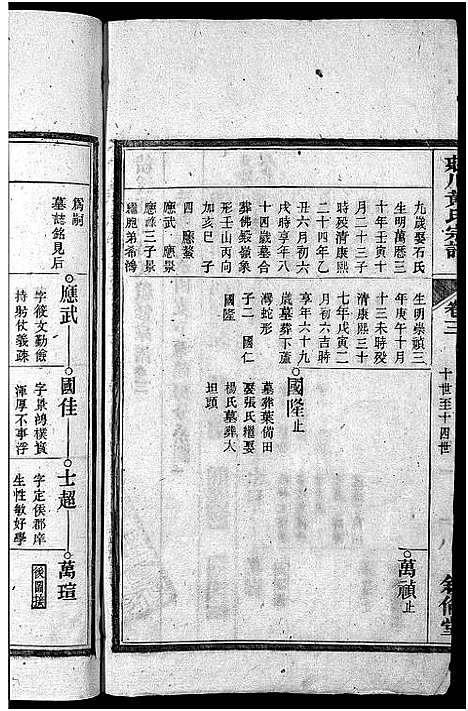 黃氏宗譜
卷三
十世至十四世
九歲娶石氏
生明萬曆三
十年壬寅十
月二十三子
時歿清康熙
二十四年乙
丑六月初六
戌時享年八
十四歲墓合
葬佛殿嶺象
形壬山丙向
加亥巳 子
四 應鰲
應武 應景
應祿三子景
繼胞弟希鴻
生明崇禎三
年庚午十月
十三未時歿
清康熙三十
七年戊寅二
月初六吉時
享年六十九
歲墓葬下蘆
灣蛇形
子二 國仁
國隆
國隆止
墓葬葉備田
娶張氏繼娶
楊氏墓葬大
坦頭
萬禎止
爲嗣
墓誌銘見后
應武
字筱文勤儉
持躬仗義疎
國佳
字景鴻樸實
渾厚不事浮
士超
字定侯郡庠
生性敏好學
萬瑄
後圖送